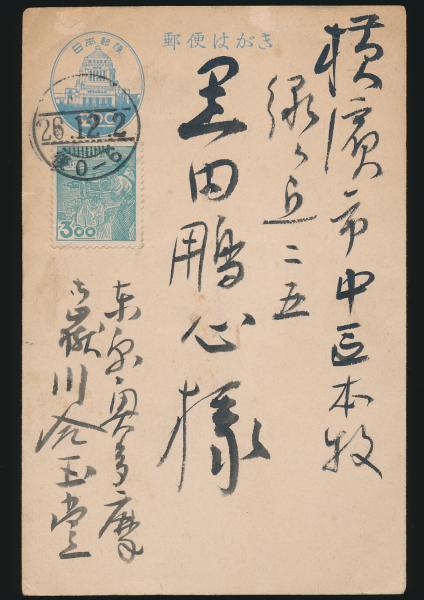 郵便はがき
日本郵便
2.00
26.12.2
后0-6
3.00
横濱市中区本牧
緑ヶ丘二五
黒田鵬心様
東京奥多摩
御嶽川合玉堂